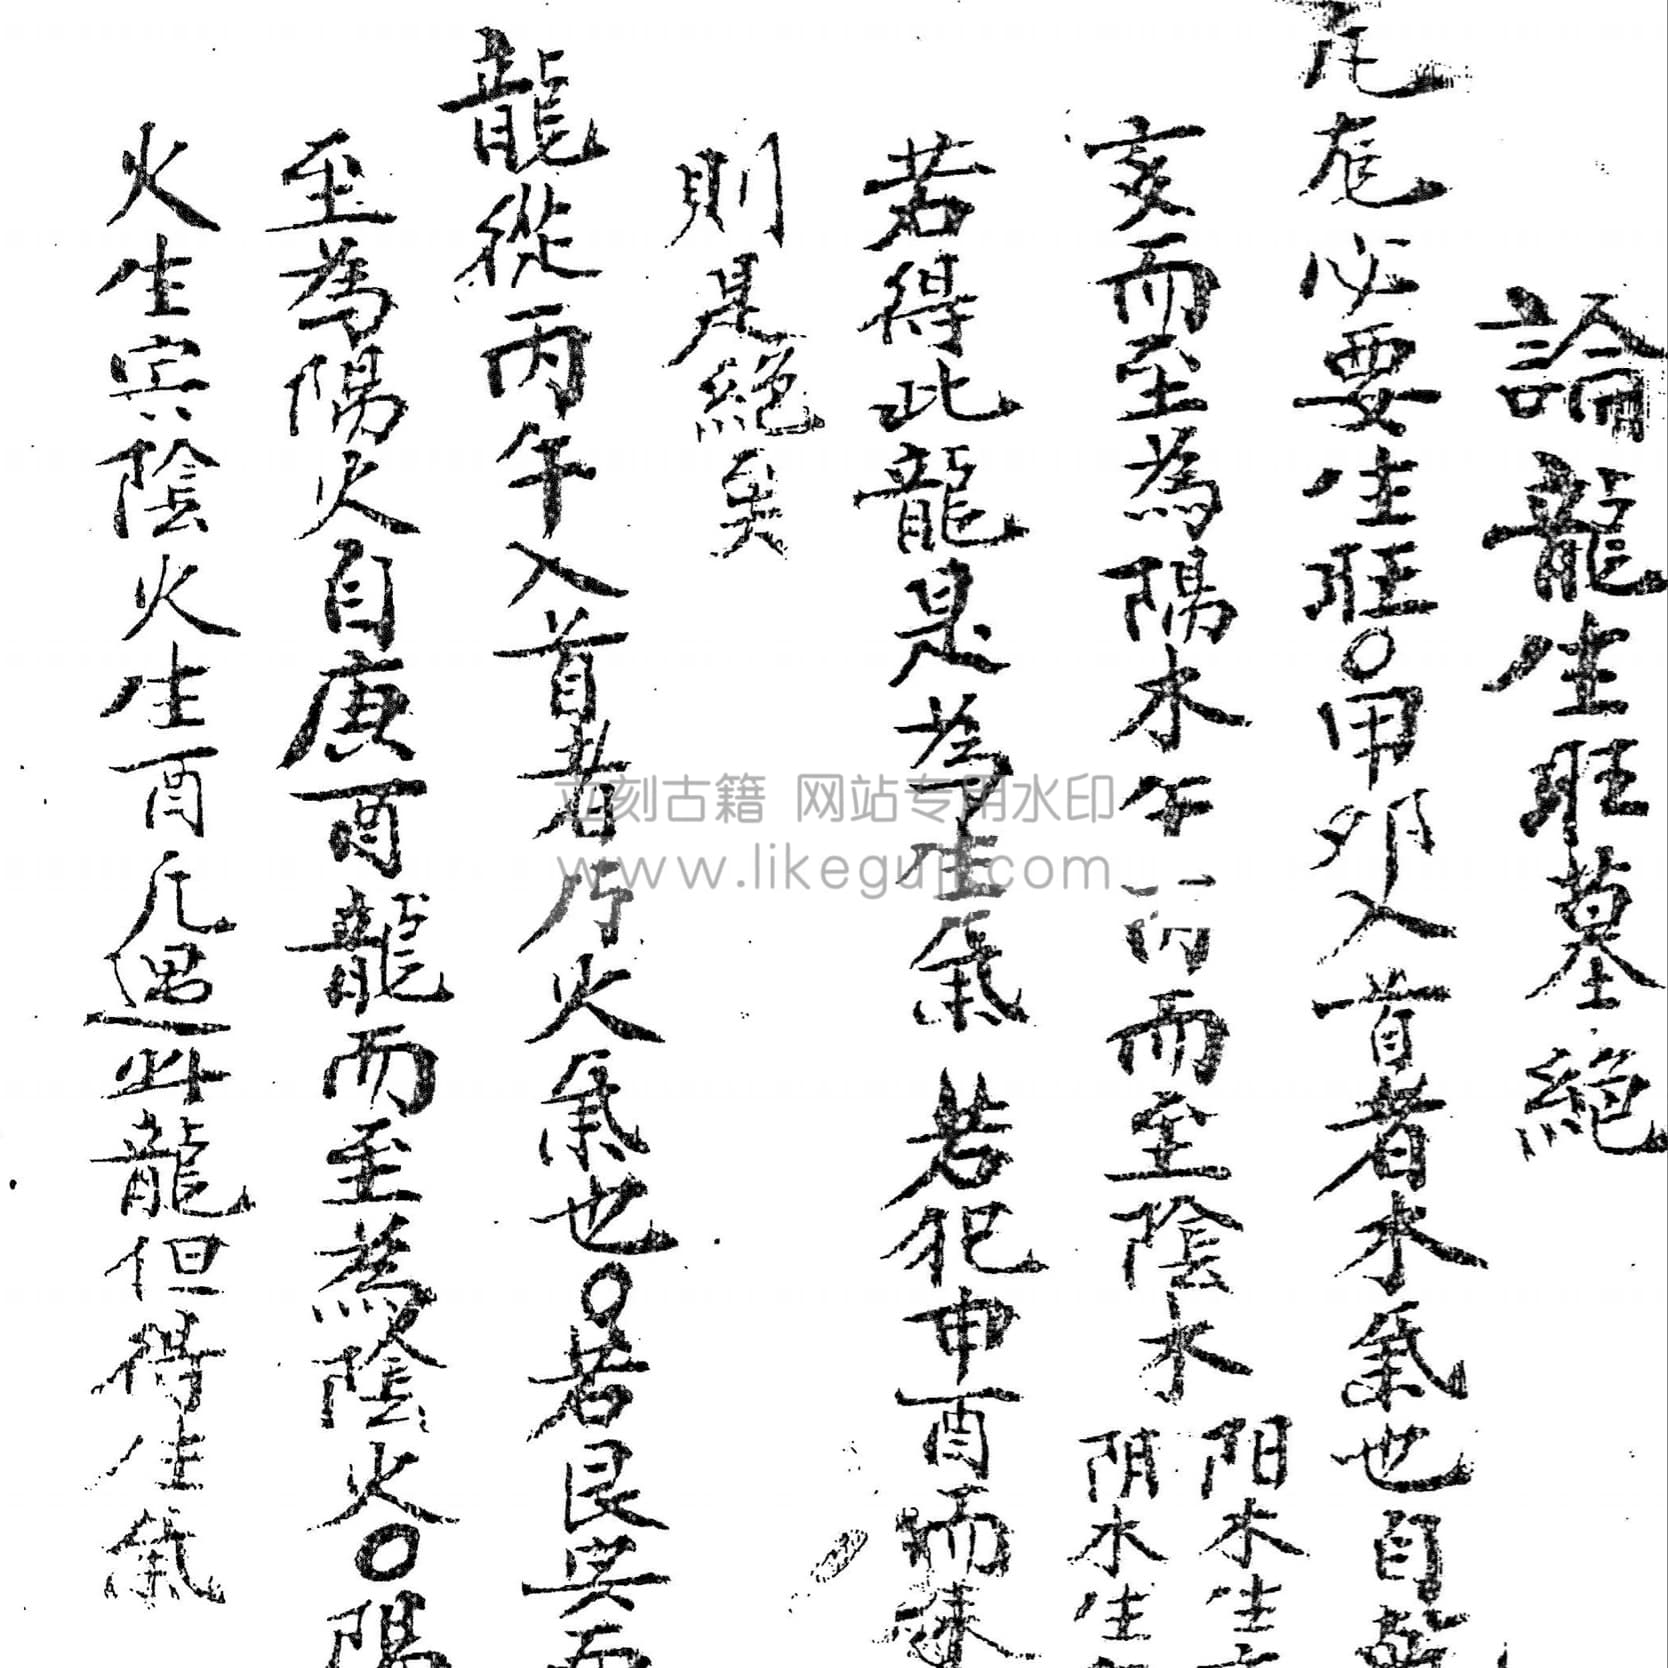 論龍生旺墓絕
龙必要生旺○甲卯入首者木氣也自
亥而至為陽木午丙而至陰木
阳木生
阴木生
若得此龍是為生氣 若犯申酉而
則是絕矣
龍從丙午入首者乃火氣也○若艮寅而
至為陽火自庚酉龍而至為陰火○陽
火生寅陰火生酉凡遇此龍但得生氣
立刻古籍 网站专用水印
www.likeguji.com